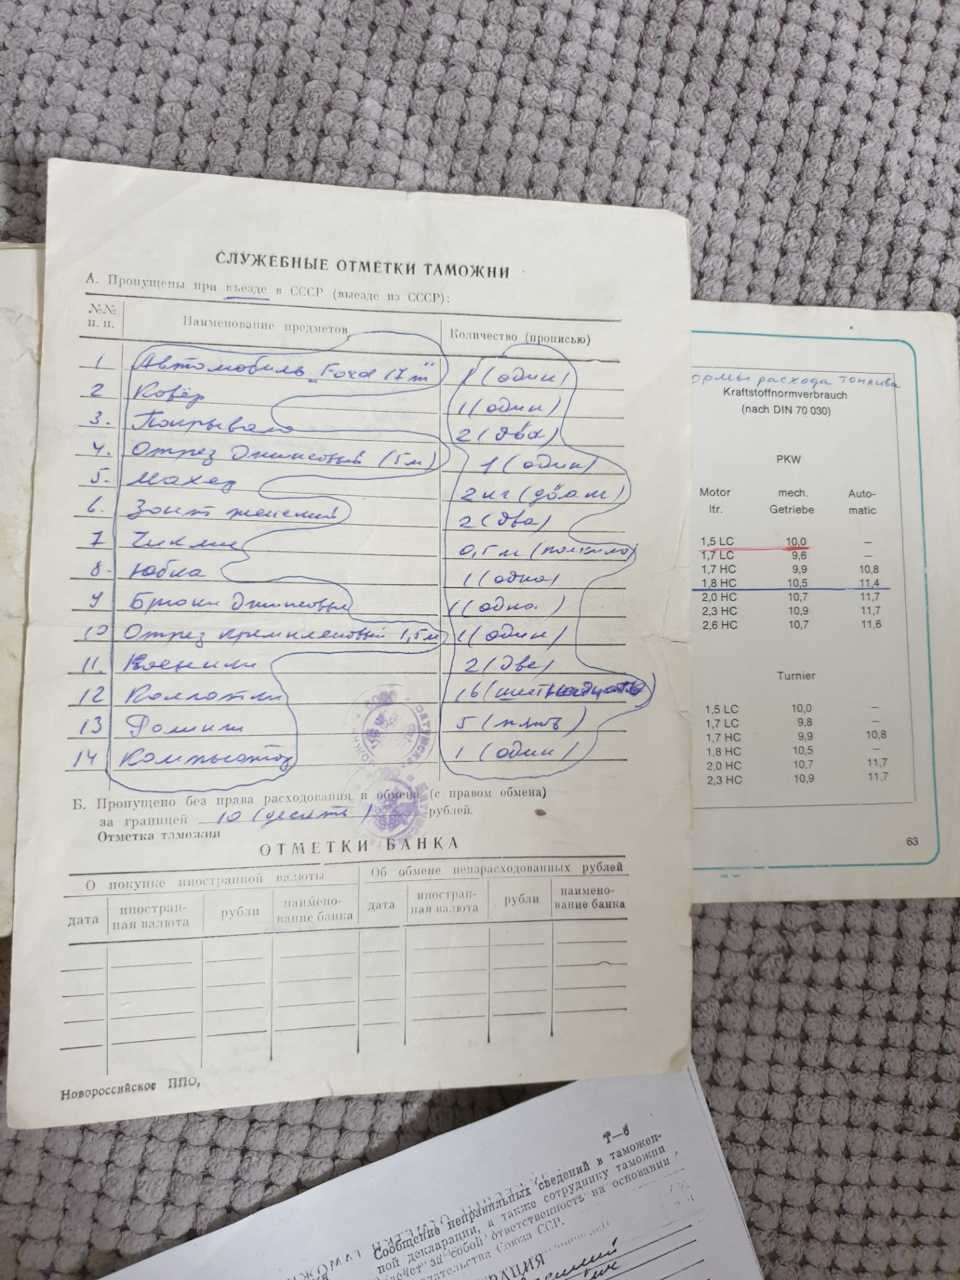 СЛУЖЕБНЫЕ ОТМЕТКИ ТАМОЖНИ
А. Пропущены при въезде в СССР (выезде из СССР):
№№ п. п. Наименование предметов Количество (прописью)
1 Автомобиль „Ford 17m" 1 (один)
2 Ковёр 1 (один)
3. Покрывало 2 (два)
4. Отрез джинсовый (5м) 1 (один)
5. Мохер 2 кг (два)
6. Зонт женский 2 (два)
7 0,5 м
8. Юбка 1 (одна)
9 Брюки джинсовые 1 (одна)
10 Отрез кремпленовый 1,5м 1 (один)
11. 2 (две)
12 Колготки 16 (шестнадцать)
13 5 (пять)
14 1 (один)
Б. Пропущено без права расходования и обмена (с правом обмена)
за границей 10 (десять) рублей.
Отметка таможни
ОТМЕТКИ БАНКА
О покупке иностранной валюты Об обмене неизрасходованных рублей
дата иностран- рубли наимено- дата иностран- рубли наимено-
ная валюта вание банка ная валюта вание банка
Новороссийское ППО,
нормы расхода топлива
Kraftstoffnormverbrauch
(nach DIN 70 030)
PKW
Motor mech. Auto-
ltr. Getriebe matic
1,5 LC 10,0 –
1,7 LC 9,6 –
1,7 HC 9,9 10,8
1,8 HC 10,5 11,4
2,0 HC 10,7 11,7
2,3 HC 10,9 11,7
2,6 HC 10,7 11,6
Turnier
1,5 LC 10,0 –
1,7 LC 9,8 –
1,7 HC 9,9 10,8
1,8 HC 10,5 –
2,0 HC 10,7 11,7
2,3 HC 10,9 11,7
63
Т—6
Сообщение неправильных сведений в таможен-
ной декларации, а также сотруднику таможни
за собой ответственность на основании
Союза ССР.